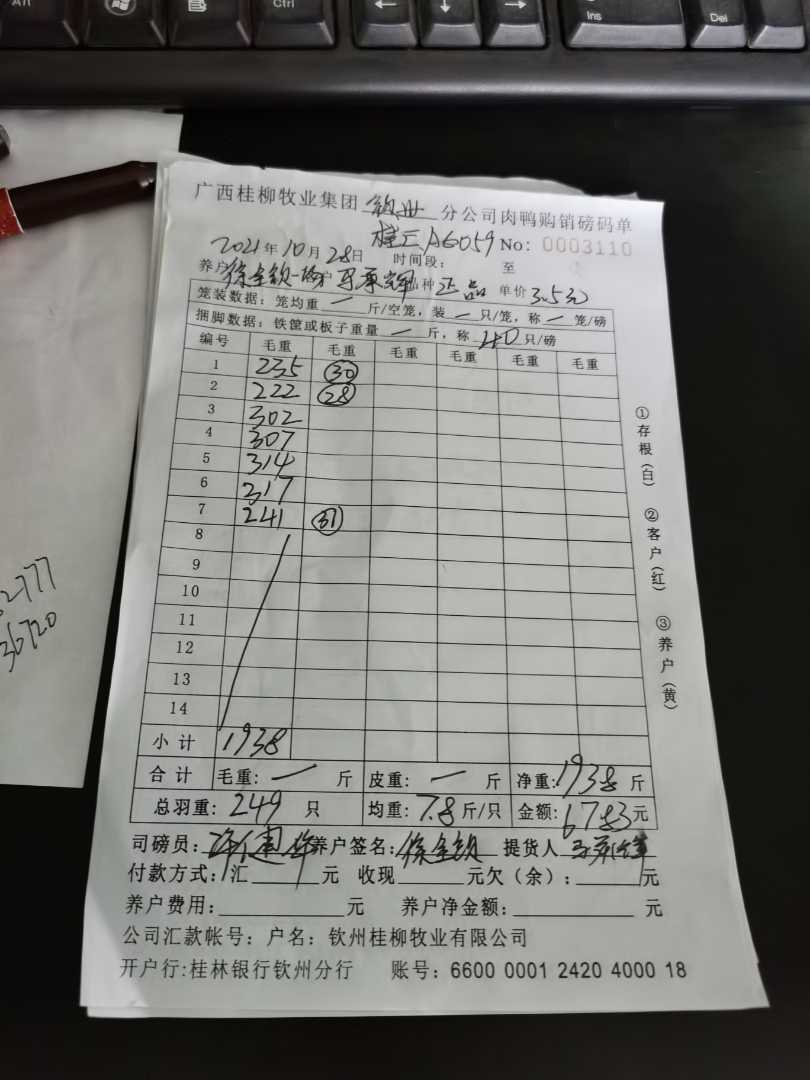 Alt
Ctrl
←
↓
→
Ins
Del
2777
36720
广西桂柳牧业集团 钦州 分公司肉鸭购销磅码单
桂 A6059 No: 0003110
2021年10月28日 时间段: 至
养户 徐全钦 户 品种 正品 单价 3.5元
笼装数据: 笼均重 一 斤/空笼, 装 一 只/笼, 称 一 笼/磅
捆脚数据: 铁筐或板子重量 一 斤, 称 40 只/磅
编号 毛重 毛重 毛重 毛重 毛重 毛重
1 235 30
2 222 28
3 302
4 307
5 314
6 317
7 241 31
8
9
10
11
12
13
14
小计 1938
合计 毛重: 一 斤 皮重: 一 斤 净重: 1938 斤
总羽重: 249 只 均重: 7.8 斤/只 金额: 6783 元
司磅员: 养户签名: 徐全钦 提货人
付款方式: 汇 元 收现 元欠(余): 元
养户费用: 元 养户净金额: 元
公司汇款帐号: 户名: 钦州桂柳牧业有限公司
开户行:桂林银行钦州分行 账号: 6600 0001 2420 4000 18
①存根(白) ②客户(红) ③养户(黄)